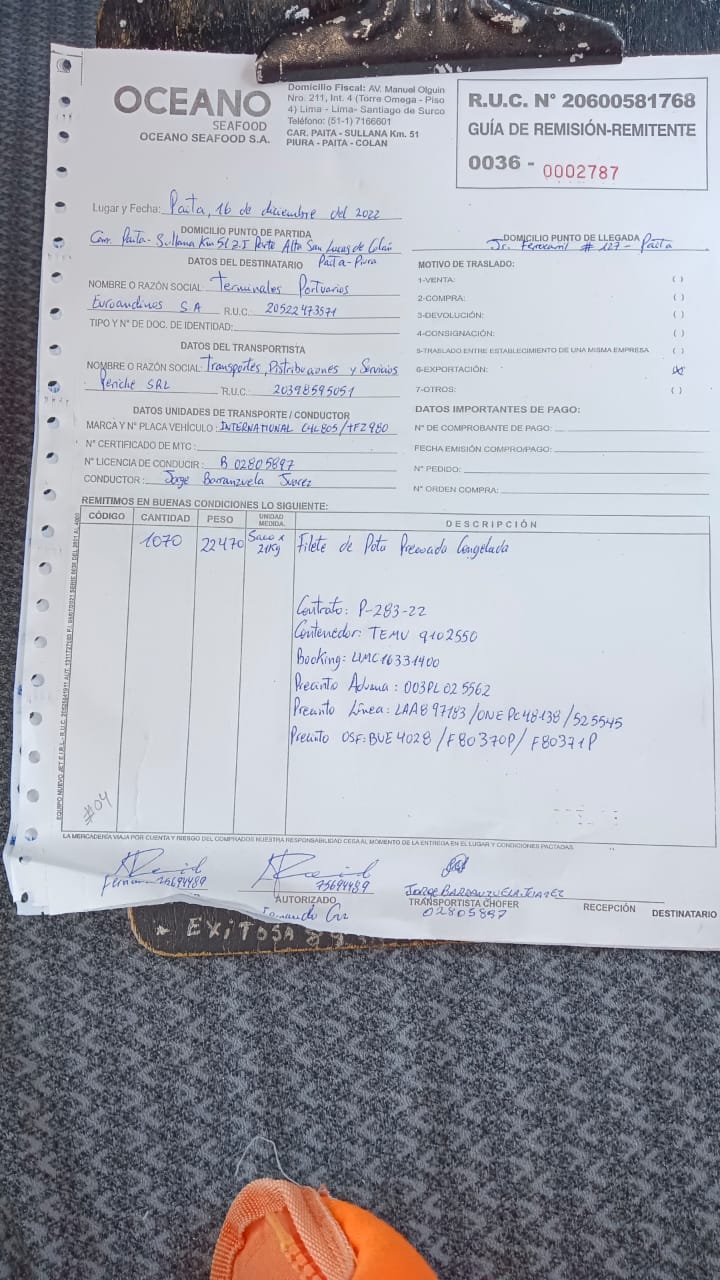 OCEANO
SEAFOOD
OCEANO SEAFOOD S.A.
Domicilio Fiscal: AV. Manuel Olguin
Nro. 211, Int. 4 (Torre Omega - Piso
4) Lima - Lima- Santiago de Surco
Teléfono: (51-1) 7166601
CAR. PAITA - SULLANA Km. 51
PIURA - PAITA - COLAN
R.U.C. N° 20600581768
GUÍA DE REMISIÓN-REMITENTE
0036 - 0002787
Lugar y Fecha: Paita, 16 de diciembre del 2022
DOMICILIO PUNTO DE PARTIDA
Carr. Paita- Sullana Km 51 Z.I Parte Alta San Lucas de Colán
Paita-Piura
DOMICILIO PUNTO DE LLEGADA
Jr. Ferrocarril # 127 - Paita
DATOS DEL DESTINATARIO
NOMBRE O RAZÓN SOCIAL: Terminales Portuarios
Euroandinos S A R.U.C. 20522473571
TIPO Y N° DE DOC. DE IDENTIDAD:
DATOS DEL TRANSPORTISTA
NOMBRE O RAZÓN SOCIAL: Transportes, Distribuciones y Servicios
Periche SRL R.U.C.: 20398595051
DATOS UNIDADES DE TRANSPORTE / CONDUCTOR
MARCA Y N° PLACA VEHÍCULO: INTERNATIONAL C4L805/TFZ980
N° CERTIFICADO DE MTC:
N° LICENCIA DE CONDUCIR: B 02805897
CONDUCTOR: Jorge Barranzuela Juarez
MOTIVO DE TRASLADO:
1-VENTA: ( )
2-COMPRA: ( )
3-DEVOLUCIÓN: ( )
4-CONSIGNACIÓN: ( )
5-TRASLADO ENTRE ESTABLECIMIENTO DE UNA MISMA EMPRESA ( )
6-EXPORTACIÓN: (X)
7-OTROS: ( )
DATOS IMPORTANTES DE PAGO:
N° DE COMPROBANTE DE PAGO:
FECHA EMISIÓN COMPRO/PAGO:
N° PEDIDO:
N° ORDEN COMPRA:
REMITIMOS EN BUENAS CONDICIONES LO SIGUIENTE:
CÓDIGO CANTIDAD PESO UNIDAD MEDIDA. DESCRIPCIÓN
1070 22470 Saco x 21Kg Filete de Pota Precocida Congelada
Contrato: P-283-22
Contenedor: TEMU 9102550
Booking: LIMC16331400
Precinto Aduana: 003PL025562
Precinto Línea: LAA897183/ONEPC48138/525545
Precinto OSF: BUE4028/F80370P/F80371P
#04
LA MERCADERÍA VIAJA POR CUENTA Y RIESGO DEL COMPRADOS NUESTRA RESPONSABILIDAD CESA AL MOMENTO DE LA ENTREGA EN EL LUGAR Y CONDICIONES PACTADAS
75694489
75694489
AUTORIZADO
JORGE BARRANZUELA JUAREZ
TRANSPORTISTA CHOFER
02805897
RECEPCIÓN
DESTINATARIO
EXITOSA